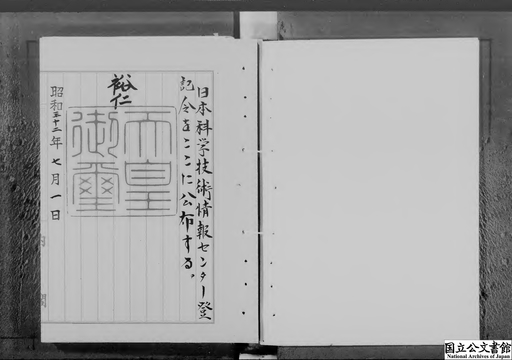 日本科学技術情報センター登
記令をここに公布する。
裕仁
天皇
御璽
昭和三十二年七月一日
内閣
国立公文書館
National Archives of Japan